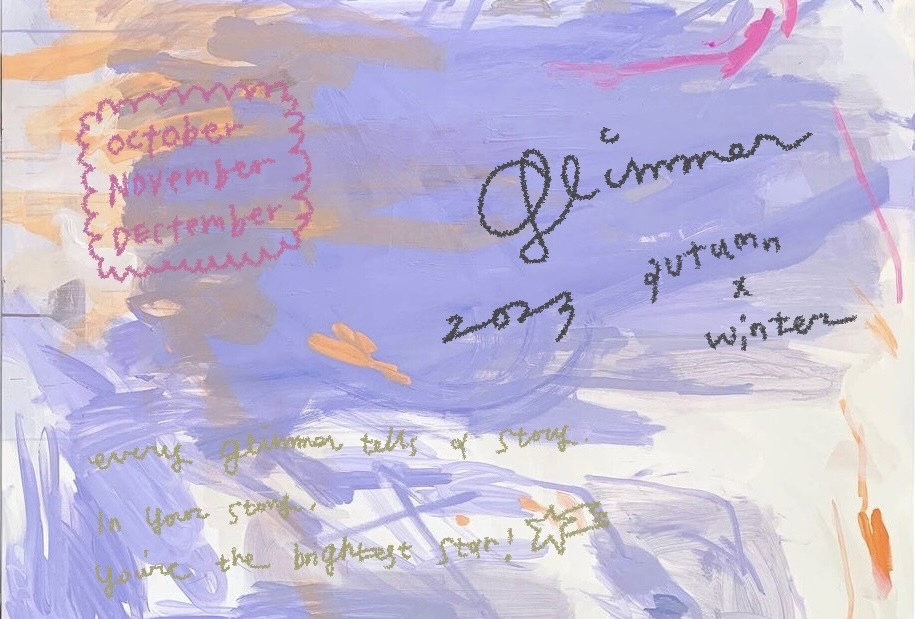 october
November
DECtember
Glimmer
2023 autumn
x
winter
every glimmer tells a story.
In your story,
You're the brightest star!